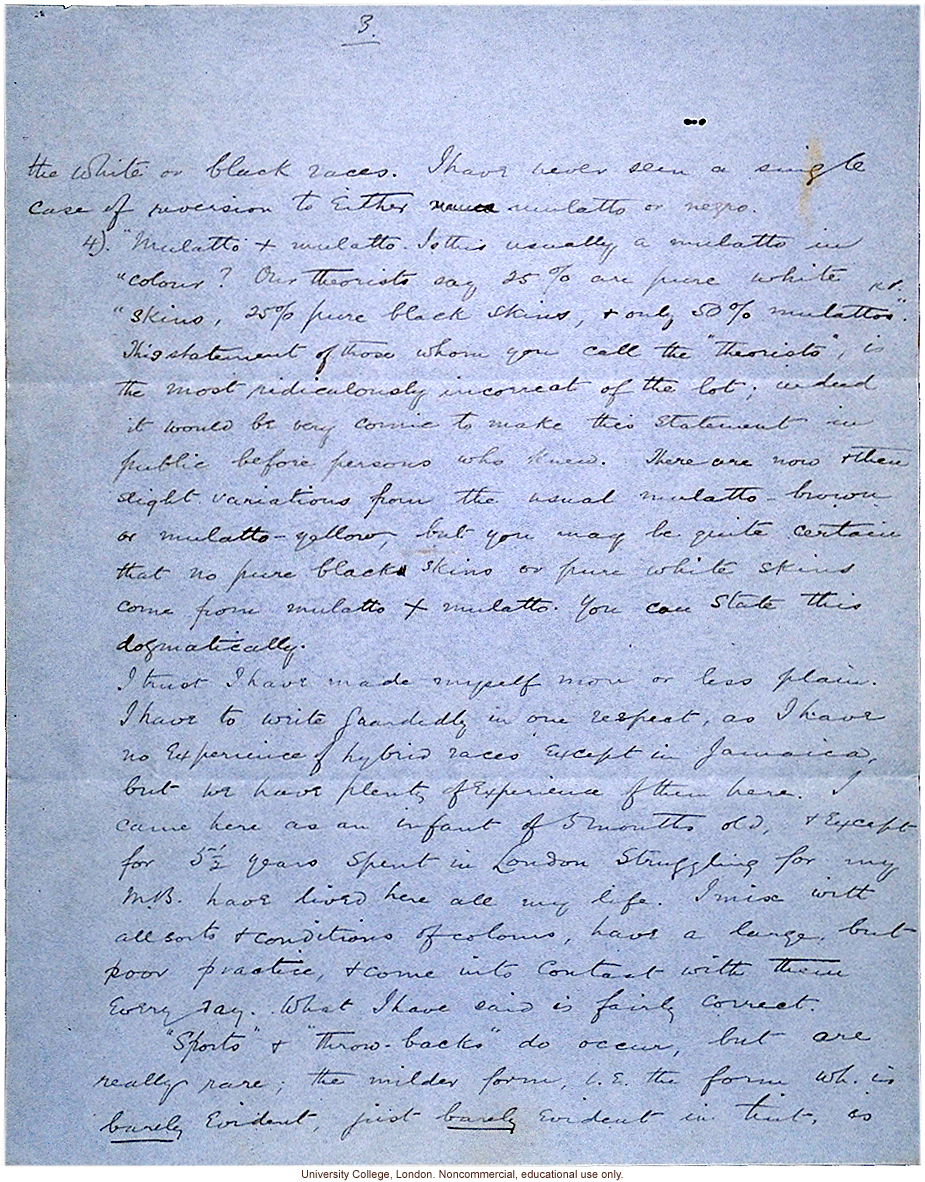 3.
the white or black races. I have never seen a single
case of reversion to Either mulatto or negro.
4). "Mulatto + mulatto. Is this usually a mulatto in
"colour? Our theorists say 25% are pure white
"skins, 25% pure black skins, & only 50% mulattos".
This statement of those whom you call the "theorists", is
the most ridiculously incorrect of the lot; indeed
it would be very comic to make this statement in
public before persons who knew. There are now & then
slight variations from the usual mulatto-brown
or mulatto-yellow, but you may be quite certain
that no pure black skins or pure white skins
come from mulatto + mulatto. You can state this
dogmatically.
I trust I have made myself more or less plain.
I have to write guardedly in one respect, as I have
no Experience of hybrid races Except in Jamaica,
but we have plenty of Experience of them here. I
came here as an infant of 5 months old, & Except
for 5½ years spent in London struggling for my
M.B. have lived here all my life. I mix with
all sorts & conditions of colours, have a large, but
poor practice, & come into contact with them
Every day. What I have said is fairly correct.
"Sports" & "throw-backs" do occur, but are
really rare; the milder form, i.e. the form wh. is
barely Evident, just barely Evident in tint, is
University College, London. Noncommercial, educational use only.